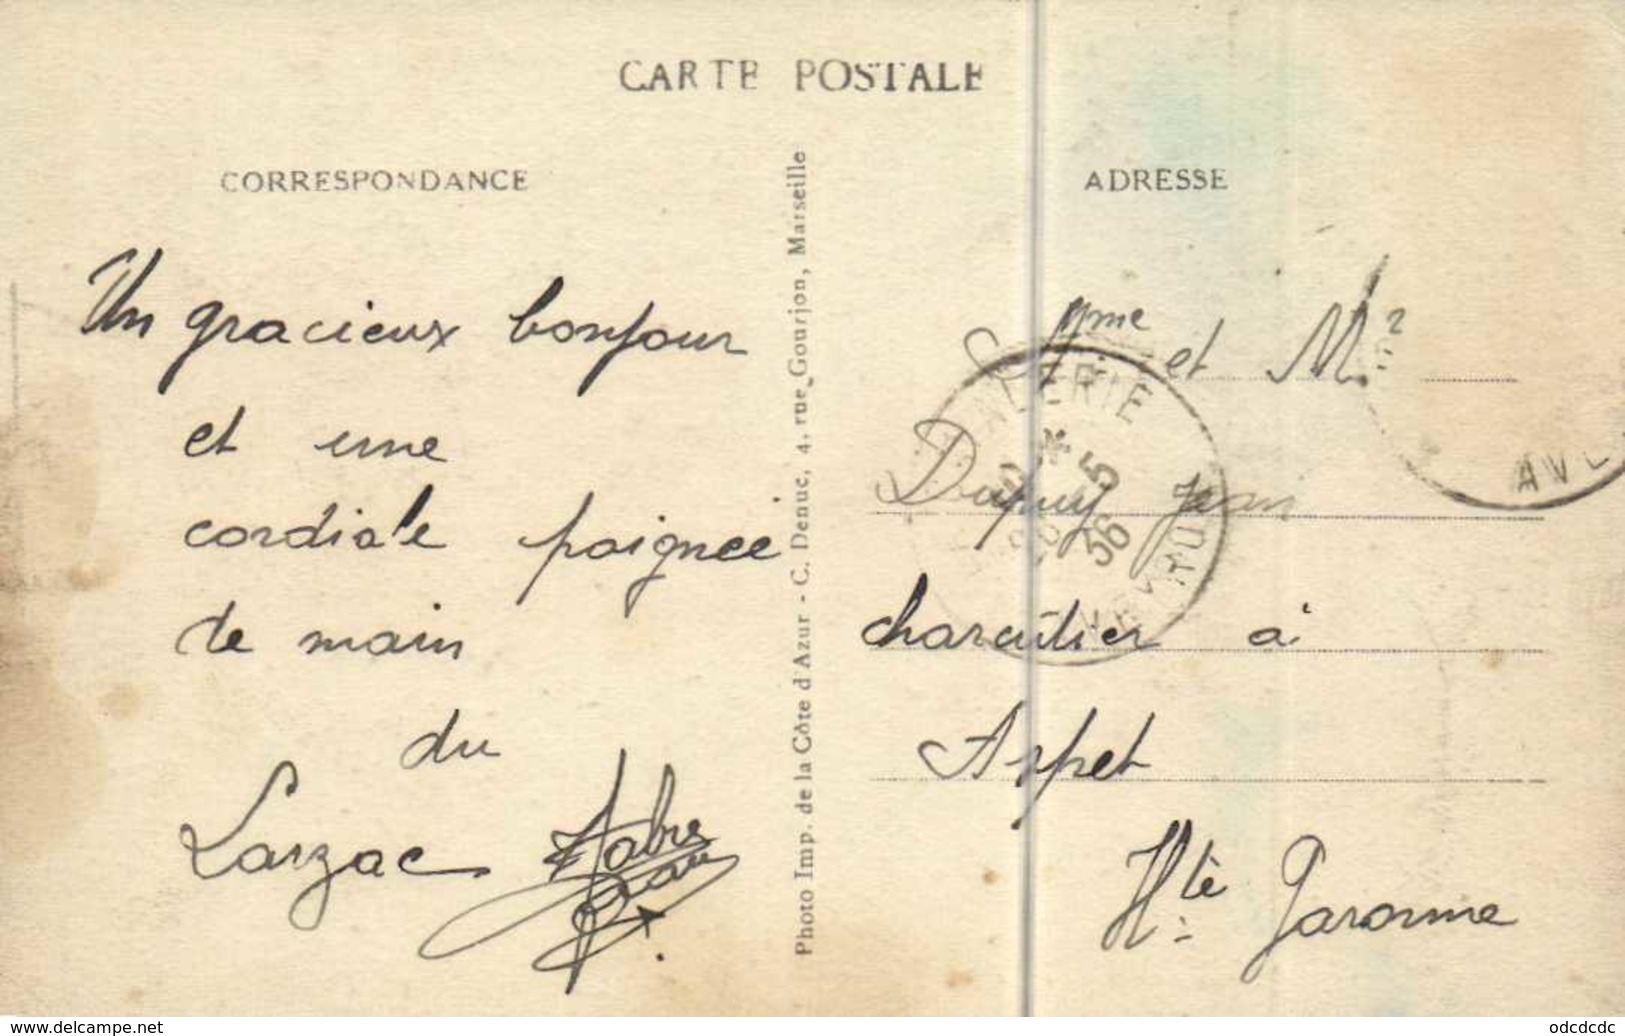 CARTE POSTALE
CORRESPONDANCE
Un gracieux bonjour
et une
cordiale poignée
de main
du
Larzac Fabre
Jean
Photo Imp. de la Côte d'Azur - C. Denuc, 4, rue Gourjon, Marseille
ADRESSE
Mme et Mr
Dupuy Jean
charcutier à
Aspet
Hte Garonne
5
36
AVE
www.delcampe.net
odcdcdc